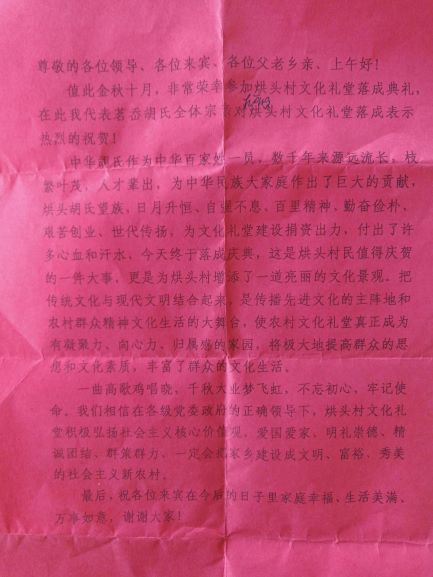 尊敬的各位领导、各位来宾、各位父老乡亲、上午好！
值此金秋十月，非常荣幸参加烘头村文化礼堂落成典礼，
在此我代表茗岙胡氏全体宗亲对烘头村文化礼堂落成表示
热烈的祝贺！
中华胡氏作为中华百家姓一员，数千年来源远流长，枝
繁叶茂，人才辈出，为中华民族大家庭作出了巨大的贡献，
烘头胡氏望族，日月升恒、自强不息、百里精神、勤奋俭朴、
艰苦创业、世代传扬，为文化礼堂建设捐资出力，付出了许
多心血和汗水、今天终于落成庆典，这是烘头村民值得庆贺
的一件大事，更是为烘头村增添了一道亮丽的文化景观。把
传统文化与现代文明结合起来，是传播先进文化的主阵地和
农村群众精神文化生活的大舞台，使农村文化礼堂真正成为
有凝聚力、向心力、归属感的家园，将极大地提高群众的思
想和文化素质，丰富了群众的文化生活。
一曲高歌鸡唱晓，千秋大业梦飞虹，不忘初心，牢记使
命。我们相信在各级党委政府的正确领导下，烘头村文化礼
堂积极弘扬社会主义核心价值观，爱国爱家、明礼崇德、精
诚团结、群策群力、一定会把家乡建设成文明、富裕、秀美
的社会主义新农村。
最后，祝各位来宾在今后的日子里家庭幸福、生活美满、
万事如意，谢谢大家！